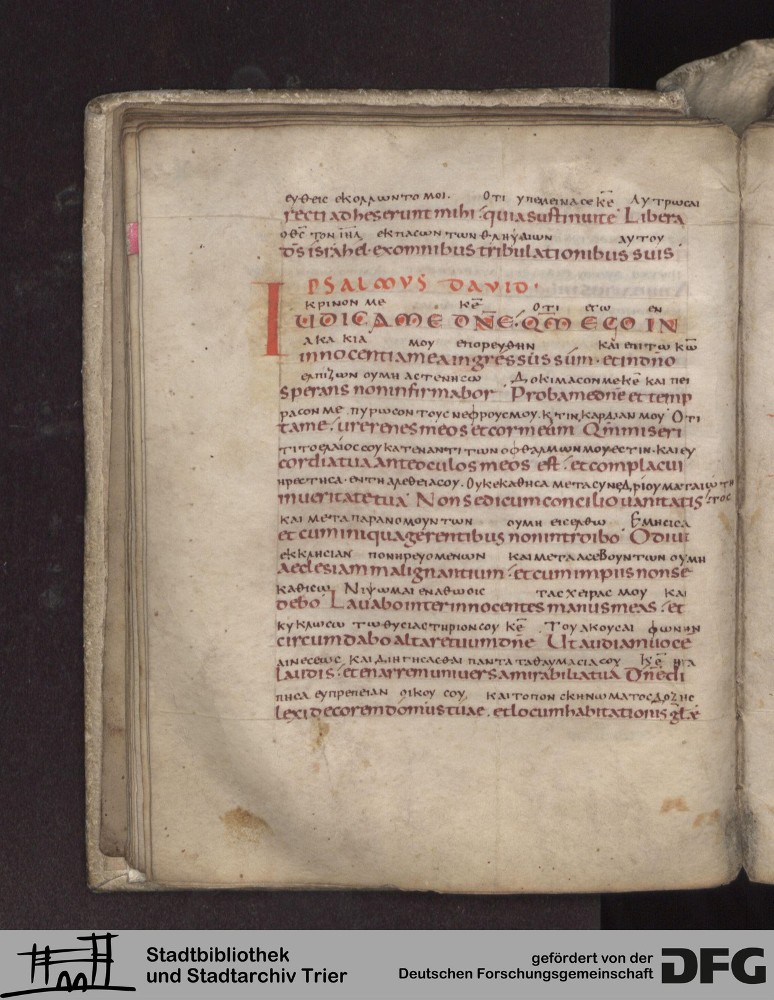 ΕΥΘΕΙϹ ΕΚΟΛΛΩΝΤΟ ΜΟΙ. ΟΤΙ ΥΠΕΜΕΙΝΑ ϹΕ Κ̅Ε̅ ΛΥΤΡΩϹΑΙ
recti adheserunt mihi · quia sustinui te Libera
Ο ΘΕϹ ΤΟΝ Ι̅Η̅Λ̅ ΕΚ ΠΑϹΩΝ ΤΩΝ ΘΛΗΨΑΙΩΝ ΑΥΤΟΥ
d̅s israhel · ex omnibus tribulationibus suis
PSALMVS DAVID ·
ΚΡΙΝΟΝ ΜΕ Κ̅Ε̅ ΟΤΙ ΕΓΩ ΕΝ
IUDICA ME DN̅E · QM̅ EGO IN
ΑΚΑΚΙΑ ΜΟΥ ΕΠΟΡΕΥΘΗΝ ΚΑΙ ΕΠΙ ΤΩ Κ̅Ω̅
innocentia mea ingressus sum · et in dn̅o
ΕΛΠΙΖΩΝ ΟΥ ΜΗ ΑϹΤΕΝΗϹΩ ΔΟΚΙΜΑϹΟΝ ΜΕ Κ̅Ε̅ ΚΑΙ ΠΕΙ
sperans non infirmabor Proba me dn̅e et temp
ΡΑϹΟΝ ΜΕ ΠΥΡΩϹΟΝ ΤΟΥϹ ΝΕΦΡΟΥϹ ΜΟΥ. Κ ΤΙΝ ΚΑΡΔΙΑΝ ΜΟΥ ΟΤΙ
ta me · ure renes meos et cor meum Qm̅ miseri
ΤΙ ΤΟ ΕΛΑΙΟϹ ϹΟΥ ΚΑΤΕΝΑΝΤΙ ΤΩΝ ΟΦΘΑΛΜΩΝ ΜΟΥ ΕϹΤΙΝ · ΚΑΙ ΕΥ
cordia tua ante oculos meos est · et complacui
ΗΡΕϹΤΗϹΑ · ΕΝ ΤΗ ΑΛΕΘΕΙΑ ϹΟΥ. ΟΥΚ ΕΚΑΘΗϹΑ ΜΕΤΑ ϹΥΝΕΔΡΙΟΥ ΜΑΤΑΙΩΤΗ
in veritate tua Non sedi cum concilio vanitatis ΤΟϹ
ΚΑΙ ΜΕΤΑ ΠΑΡΑΝΟΜΟΥΝΤΩΝ ΟΥ ΜΗ ΕΙϹΕΛΘΩ ΕΜΗϹΙϹΑ
et cum iniqua gerentibus non introibo Odivi
ΕΚΚΛΗϹΙΑΝ ΠΟΝΗΡΕΥΟΜΕΝΩΝ ΚΑΙ ΜΕΤΑ ΑϹΕΒΟΥΝΤΩΝ ΟΥ ΜΗ
aeclesiam malignantium · et cum impiis non se
ΚΑΘΙϹΩ ΝΙΨΩΜΑΙ ΕΝ ΑΘΩΟΙϹ ΤΑϹ ΧΕΙΡΑϹ ΜΟΥ ΚΑΙ
debo Lavabo inter innocentes manus meas · et
ΚΥΚΛΩϹΩ ΤΩ ΘΥϹΙΑϹΤΗΡΙΟΝ ϹΟΥ Κ̅Ε̅ ΤΟΥ ΑΚΟΥϹΑΙ ΦΩΝΗΝ
circumdabo altare tuum dn̅e Ut audiam voce
ΑΙΝΕϹΕΩϹ ΚΑΙ ΔΙΗΓΗϹΑϹΘΑΙ ΠΑΝΤΑ ΤΑ ΘΑΥΜΑϹΙΑ ϹΟΥ Κ̅Ε̅ ΗΓΑ
laudis · et enarrem universa mirabilia tua Dn̅e di
ΠΗϹΑ ΕΥΠΡΕΠΕΙΑΝ ΟΙΚΟΥ ϹΟΥ. ΚΑΙ ΤΟΠΟΝ ϹΚΗΝΩΜΑΤΟϹ ΔΟΞΗϹ
lexi decorem domus tuae · et locum habitationis gl̅ae
Stadtbibliothek
und Stadtarchiv Trier
gefördert von der
Deutschen Forschungsgemeinschaft
DFG